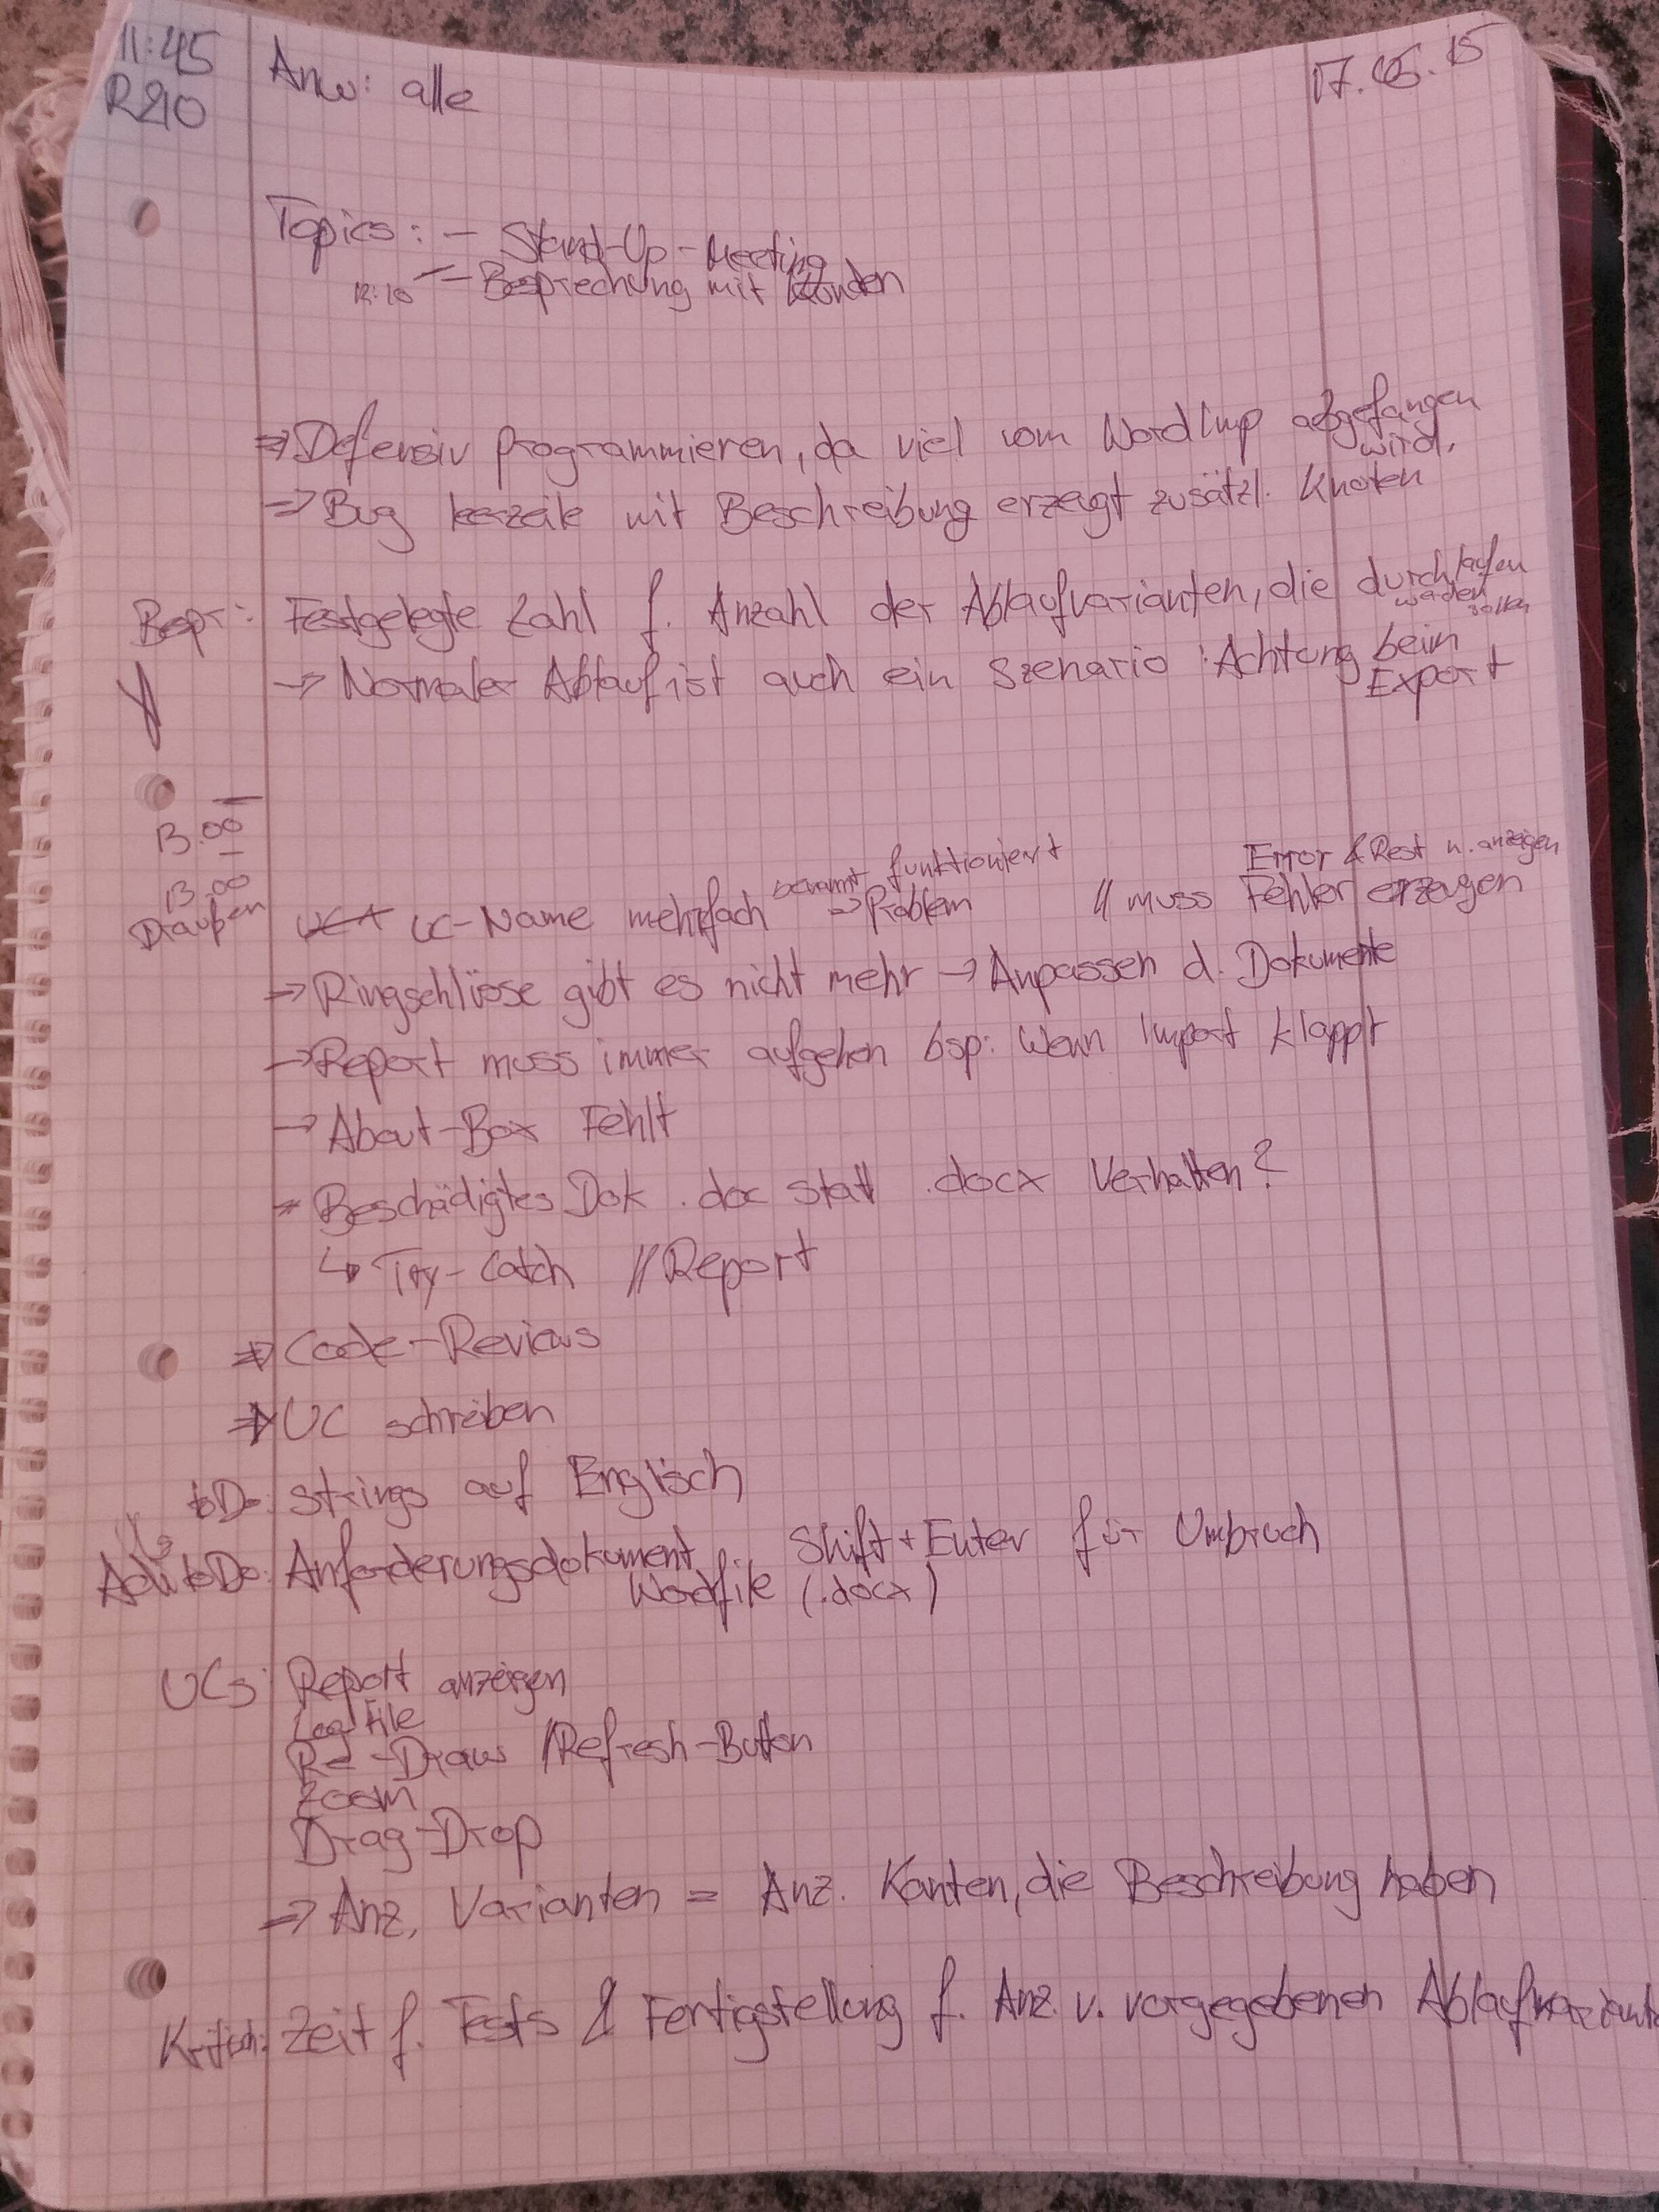 11:45 Anw: alle 17.06.15
R210
Topics: - Stand-Up-Meeting
12:10 - Besprechung mit Kunden
=> Defensiv programmieren, da viel vom WordImp abgefangen
wird.
=> Bug leerzeile mit Beschreibung erzeugt zusätzl. Knoten
Bspr: Festgelegte Zahl f. Anzahl der Ablaufvarianten, die durchlaufen
werden sollen
-> Normaler Ablauf ist auch ein Szenario ! Achtung beim
Export
13.00
-
13.00
Draußen
UC-Name mehrfach benannt funktioniert => Problem // muss Fehler erzeugen
Error & Rest n. anzeigen
-> Ringschlüsse gibt es nicht mehr -> Anpassen d. Dokumente
-> Report muss immer aufgehen bsp: Wenn Import klappt
-> About-Box Fehlt
-> Beschädigtes Dok .doc statt .docx Verhalten?
↳ Try-Catch // Report
=> Code-Reviews
=> UC schreiben
toDo: strings auf Englisch
toDo: Anforderungsdokument Shift+Enter für Umbruch
Wordfile (.docx)
UCs: Report anzeigen
Log File
Re-Draw / Refresh-Button
Zoom
Drag-Drop
=> Anz. Varianten = Anz. Kanten, die Beschreibung haben
Kritisch: Zeit f. Tests & Fertigstellung f. Anz. v. vorgegebenen